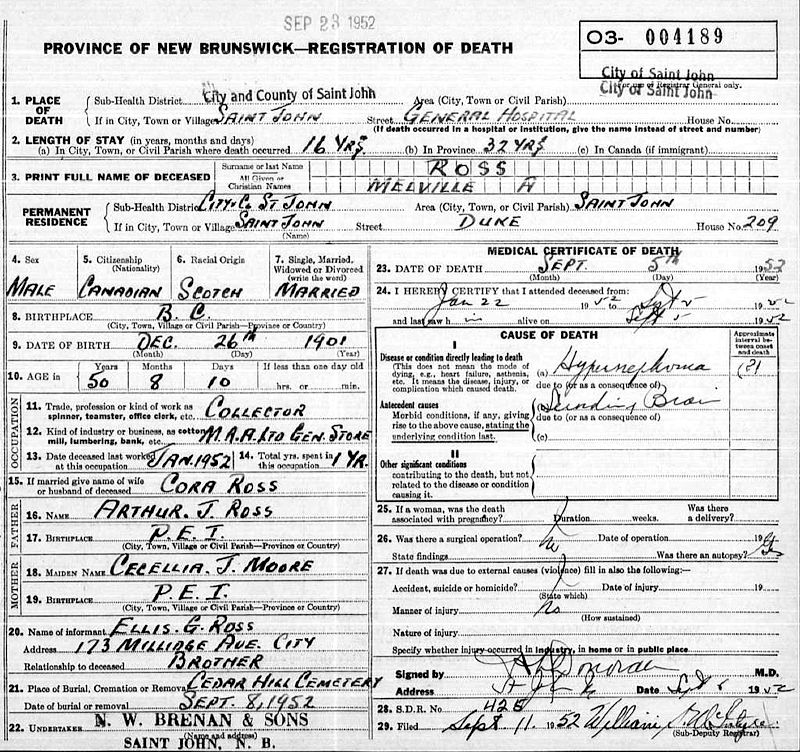 SEP 23 1952
PROVINCE OF NEW BRUNSWICK—REGISTRATION OF DEATH
03- 004189
City of Saint John
For use of Registrar General only.
City of Saint John
1. PLACE OF DEATH
Sub-Health District City and County of Saint John Area (City, Town or Civil Parish)
If in City, Town or Village SAINT JOHN Street GENERAL HOSPITAL House No.
(If death occurred in a hospital or institution, give the name instead of street and number)
2. LENGTH OF STAY (in years, months and days)
(a) In City, Town, or Civil Parish where death occurred 16 YRS (b) In Province 32 YRS (c) In Canada (if immigrant)
3. PRINT FULL NAME OF DECEASED
Surname or last Name ROSS
All Given or Christian Names MELVILLE A
PERMANENT RESIDENCE
Sub-Health District CITY & CO ST JOHN Area (City, Town, or Civil Parish) SAINT JOHN
If in City, Town or Village SAINT JOHN Street DUKE House No. 209
(Name)
4. Sex 5. Citizenship (Nationality) 6. Racial Origin 7. Single, Married, Widowed or Divorced (write the word)
MALE CANADIAN SCOTCH MARRIED
8. BIRTHPLACE B.C.
(City, Town, Village or Civil Parish—Province or Country)
9. DATE OF BIRTH DEC. 26th 1901
(Month) (Day) (Year)
10. AGE in Years Months Days If less than one day old
50 8 10 hrs. or min.
OCCUPATION
11. Trade, profession or kind of work as spinner, teamster, office clerk, etc. COLLECTOR
12. Kind of industry or business, as cotton mill, lumbering, bank, etc. M.R.A. LTD GEN. STORE
13. Date deceased last worked at this occupation JAN. 1952 14. Total yrs. spent in this occupation 1 YR.
15. If married give name of wife or husband of deceased CORA ROSS
FATHER
16. NAME ARTHUR. J. ROSS
17. BIRTHPLACE P.E.I.
(City, Town, Village or Civil Parish—Province or Country)
MOTHER
18. MAIDEN NAME CECELLIA. J. MOORE
19. BIRTHPLACE P.E.I.
(City, Town, Village or Civil Parish—Province or Country)
20. Name of informant ELLIS. G. ROSS
Address 173 MILLIDGE AVE. CITY
Relationship to deceased BROTHER
21. Place of Burial, Cremation or Removal CEDAR HILL CEMETERY
Date of burial or removal SEPT. 8, 1952
22. UNDERTAKER N. W. BRENAN & SONS
(Name and address)
SAINT JOHN, N. B.
MEDICAL CERTIFICATE OF DEATH
23. DATE OF DEATH SEPT. 5th 1952
(Month) (Day) (Year)
24. I HEREBY CERTIFY that I attended deceased from:
Jan 22 1952 to Sept 5 1952
and last saw h im alive on Sept 5 1952
CAUSE OF DEATH
Approximate interval between onset and death
I
Disease or condition directly leading to death
(This does not mean the mode of dying, e.g., heart failure, asthenia, etc. It means the disease, injury, or complication which caused death.
(a) Hypernephroma
due to (or as a consequence of)
Antecedent causes
Morbid conditions, if any, giving rise to the above cause, stating the underlying condition last.
(b)
due to (or as a consequence of)
(c)
II
Other significant conditions
contributing to the death, but not related to the disease or condition causing it.
25. If a woman, was the death associated with pregnancy? Duration weeks. Was there a delivery?
26. Was there surgical operation? No Date of operation 19
State findings Was there an autopsy?
27. If death was due to external causes (violence) fill in also the following:—
Accident, suicide or homicide? Date of injury 19
(State which)
Manner of injury No
(How sustained)
Nature of injury
Specify whether injury occurred in industry, in home or in public place
Signed by M.D.
Address Date Sept 5 1952
28. S.D.R. No. 425
29. Filed Sept. 11 1952 William
(Sub-Deputy Registrar)